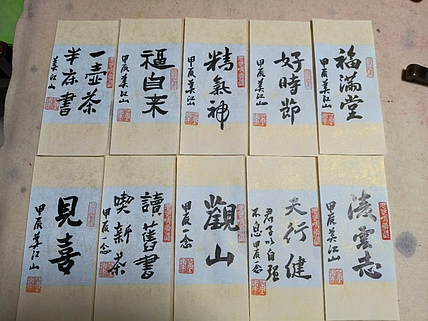 福满堂
甲辰
江山
好時節
甲辰
江山
精氣神
甲辰
江山
福自来
甲辰
江山
一壺茶
半床書
江山
凌雲志
甲辰
江山
天行健
君子以自强
不息 甲辰一念
觀山
甲辰一念
讀舊書
喫新茶
甲辰一念
見喜
甲辰
江山